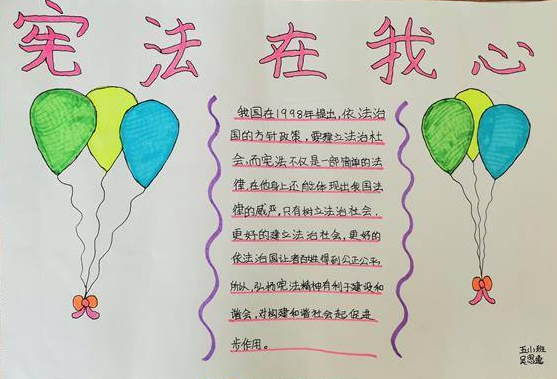 宪法在我心
我国在1998年提出,依法治
国的方针政策,要建立法治社
会,而宪法不仅是一部简单的法
律,在他身上还能体现出我国法
律的威严,只有树立法治社会,
更好的建立法治社会,更好的
依法治国让老百姓得到公正公平,
所以,弘扬宪法精神有利于建设和
谐会,对构建和谐社会起促进
步作用。
五(1)班
吴思